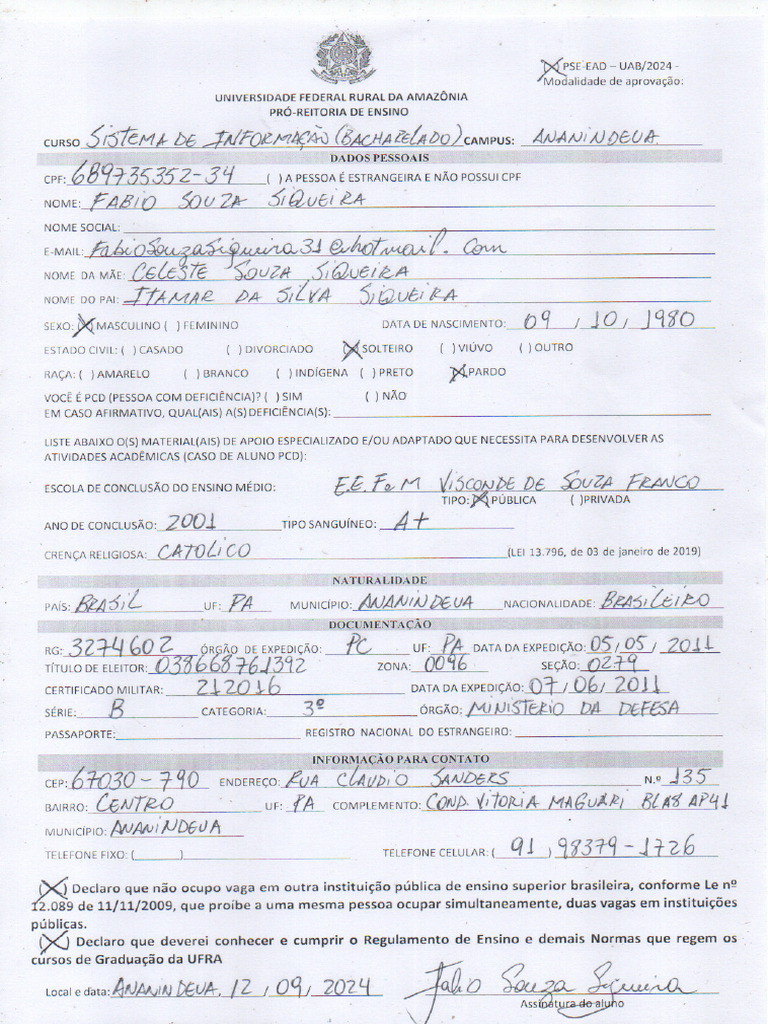 (X) PSE-EAD – UAB/2024 -
Modalidade de aprovação:
UNIVERSIDADE FEDERAL RURAL DA AMAZÔNIA
PRÓ-REITORIA DE ENSINO
CURSO SISTEMA DE INFORMAÇÃO (BACHARELADO) CAMPUS: ANANINDEUA
DADOS PESSOAIS
CPF: 689735352-34 ( ) A PESSOA É ESTRANGEIRA E NÃO POSSUI CPF
NOME: FABIO SOUZA SIQUEIRA
NOME SOCIAL:
E-MAIL: FabioSouzaSiqueira31@hotmail.com
NOME DA MÃE: CELESTE SOUZA SIQUEIRA
NOME DO PAI: ITAMAR DA SILVA SIQUEIRA
SEXO: (X) MASCULINO ( ) FEMININO DATA DE NASCIMENTO: 09 / 10 / 1980
ESTADO CIVIL: ( ) CASADO ( ) DIVORCIADO (X) SOLTEIRO ( ) VIÚVO ( ) OUTRO
RAÇA: ( ) AMARELO ( ) BRANCO ( ) INDÍGENA ( ) PRETO (X) PARDO
VOCÊ É PCD (PESSOA COM DEFICIÊNCIA)? ( ) SIM ( ) NÃO
EM CASO AFIRMATIVO, QUAL(AIS) A(S) DEFICIÊNCIA(S):
LISTE ABAIXO O(S) MATERIAL(AIS) DE APOIO ESPECIALIZADO E/OU ADAPTADO QUE NECESSITA PARA DESENVOLVER AS
ATIVIDADES ACADÊMICAS (CASO DE ALUNO PCD):
ESCOLA DE CONCLUSÃO DO ENSINO MÉDIO: E.E.F e M VISCONDE DE SOUZA FRANCO
TIPO: (X) PÚBLICA ( ) PRIVADA
ANO DE CONCLUSÃO: 2001 TIPO SANGUÍNEO: A+
CRENÇA RELIGIOSA: CATOLICO (LEI 13.796, de 03 de janeiro de 2019)
NATURALIDADE
PAÍS: BRASIL UF: PA MUNICÍPIO: ANANINDEUA NACIONALIDADE: BRASILEIRO
DOCUMENTAÇÃO
RG: 3274602 ÓRGÃO DE EXPEDIÇÃO: PC UF: PA DATA DA EXPEDIÇÃO: 05/05/2011
TÍTULO DE ELEITOR: 038668761392 ZONA: 0096 SEÇÃO: 0279
CERTIFICADO MILITAR: 212016 DATA DA EXPEDIÇÃO: 07/06/2011
SÉRIE: B CATEGORIA: 3ª ÓRGÃO: MINISTERIO DA DEFESA
PASSAPORTE: REGISTRO NACIONAL DO ESTRANGEIRO:
INFORMAÇÃO PARA CONTATO
CEP: 67030-790 ENDEREÇO: RUA CLAUDIO SANDERS N.º 135
BAIRRO: CENTRO UF: PA COMPLEMENTO: COND. VITORIA MAGUARI BLA8 AP41
MUNICÍPIO: ANANINDEUA
TELEFONE FIXO: ( ) TELEFONE CELULAR: ( 91 ) 98379-1726
(X) Declaro que não ocupo vaga em outra instituição pública de ensino superior brasileira, conforme Le nº
12.089 de 11/11/2009, que proíbe a uma mesma pessoa ocupar simultaneamente, duas vagas em instituições
públicas.
(X) Declaro que deverei conhecer e cumprir o Regulamento de Ensino e demais Normas que regem os
cursos de Graduação da UFRA
Local e data: ANANINDEUA, 12 / 09 / 2024 Fabio Souza Siqueira
Assinatura do aluno